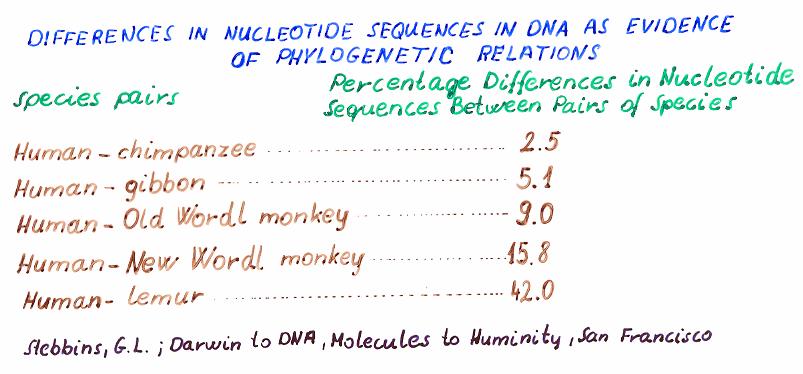 DIFFERENCES IN NUCLEOTIDE SEQUENCES IN DNA AS EVIDENCE
OF PHYLOGENETIC RELATIONS
Species pairs
Percentage Differences in Nucleotide
Sequences Between Pairs of Species
Human - chimpanzee .................. 2.5
Human - gibbon .................. 5.1
Human - Old Wordl monkey .................. 9.0
Human - New Wordl monkey .................. 15.8
Human - lemur .................. 42.0
Stebbins, G.L. ; Darwin to DNA, Molecules to Huminity, San Francisco